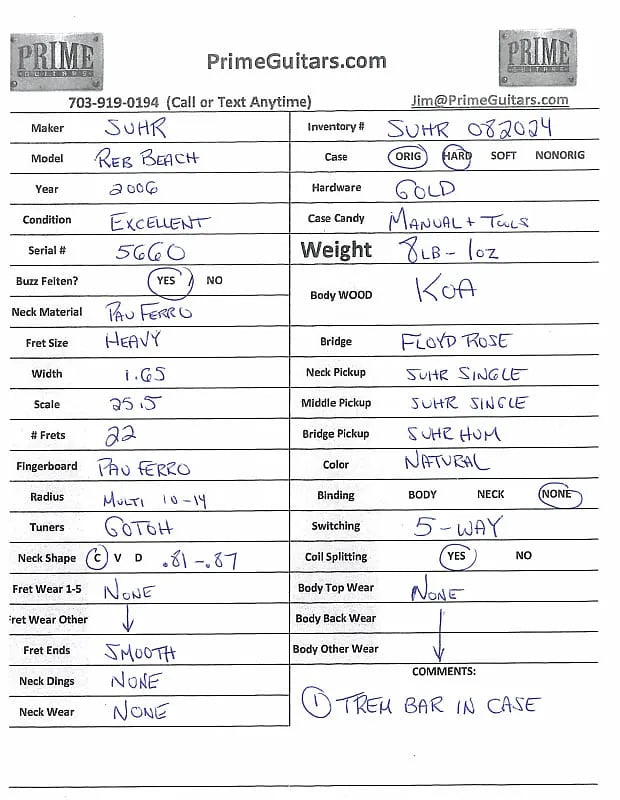 PRIME
GUITARS
PrimeGuitars.com
PRIME
GUITARS
703-919-0194 (Call or Text Anytime)
Jim@PrimeGuitars.com
Maker SUHR
Model REB BEACH
Year 2006
Condition EXCELLENT
Serial # 5660
Buzz Feiten? YES NO
Neck Material PAU FERRO
Fret Size HEAVY
Width 1.65
Scale 25.5
# Frets 22
Fingerboard PAU FERRO
Radius MULTI 10-14
Tuners GOTOH
Neck Shape C V D .81-.87
Fret Wear 1-5 NONE
Fret Wear Other
Fret Ends SMOOTH
Neck Dings NONE
Neck Wear NONE
Inventory # SUHR 082024
Case ORIG HARD SOFT NONORIG
Hardware GOLD
Case Candy MANUAL + TOOLS
Weight 8LB-1oz
Body WOOD KOA
Bridge FLOYD ROSE
Neck Pickup SUHR SINGLE
Middle Pickup SUHR SINGLE
Bridge Pickup SUHR HUM
Color NATURAL
Binding BODY NECK NONE
Switching 5-WAY
Coil Splitting YES NO
Body Top Wear NONE
Body Back Wear
Body Other Wear
COMMENTS:
1 TREM BAR IN CASE